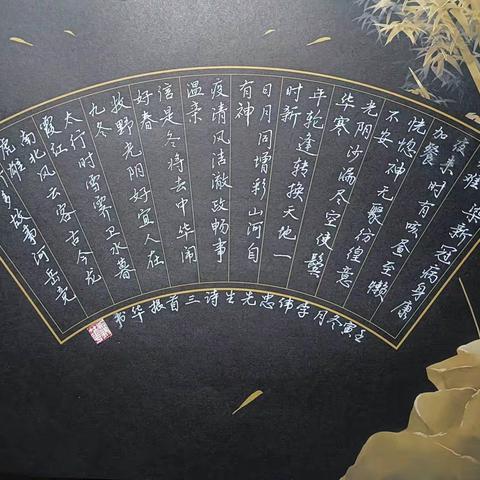 难染新冠病身康
来时有咳昼至懒
加餐
恍惚神无聚彷徨意
不安
光阴沙漏尽空使鬓
华寒
年轮逢转换天地一
时新
日月同增彩山河自
有神
疫清风洁澈政畅事
温亲
这是冬将去中华闹
好春
牧野光阴好宜人在
九冬
太行时雪霁卫水暮
霞红
南北风云客古今尤
雄
故事河岳竞
壬寅冬月李伟忠先生诗三首振华书